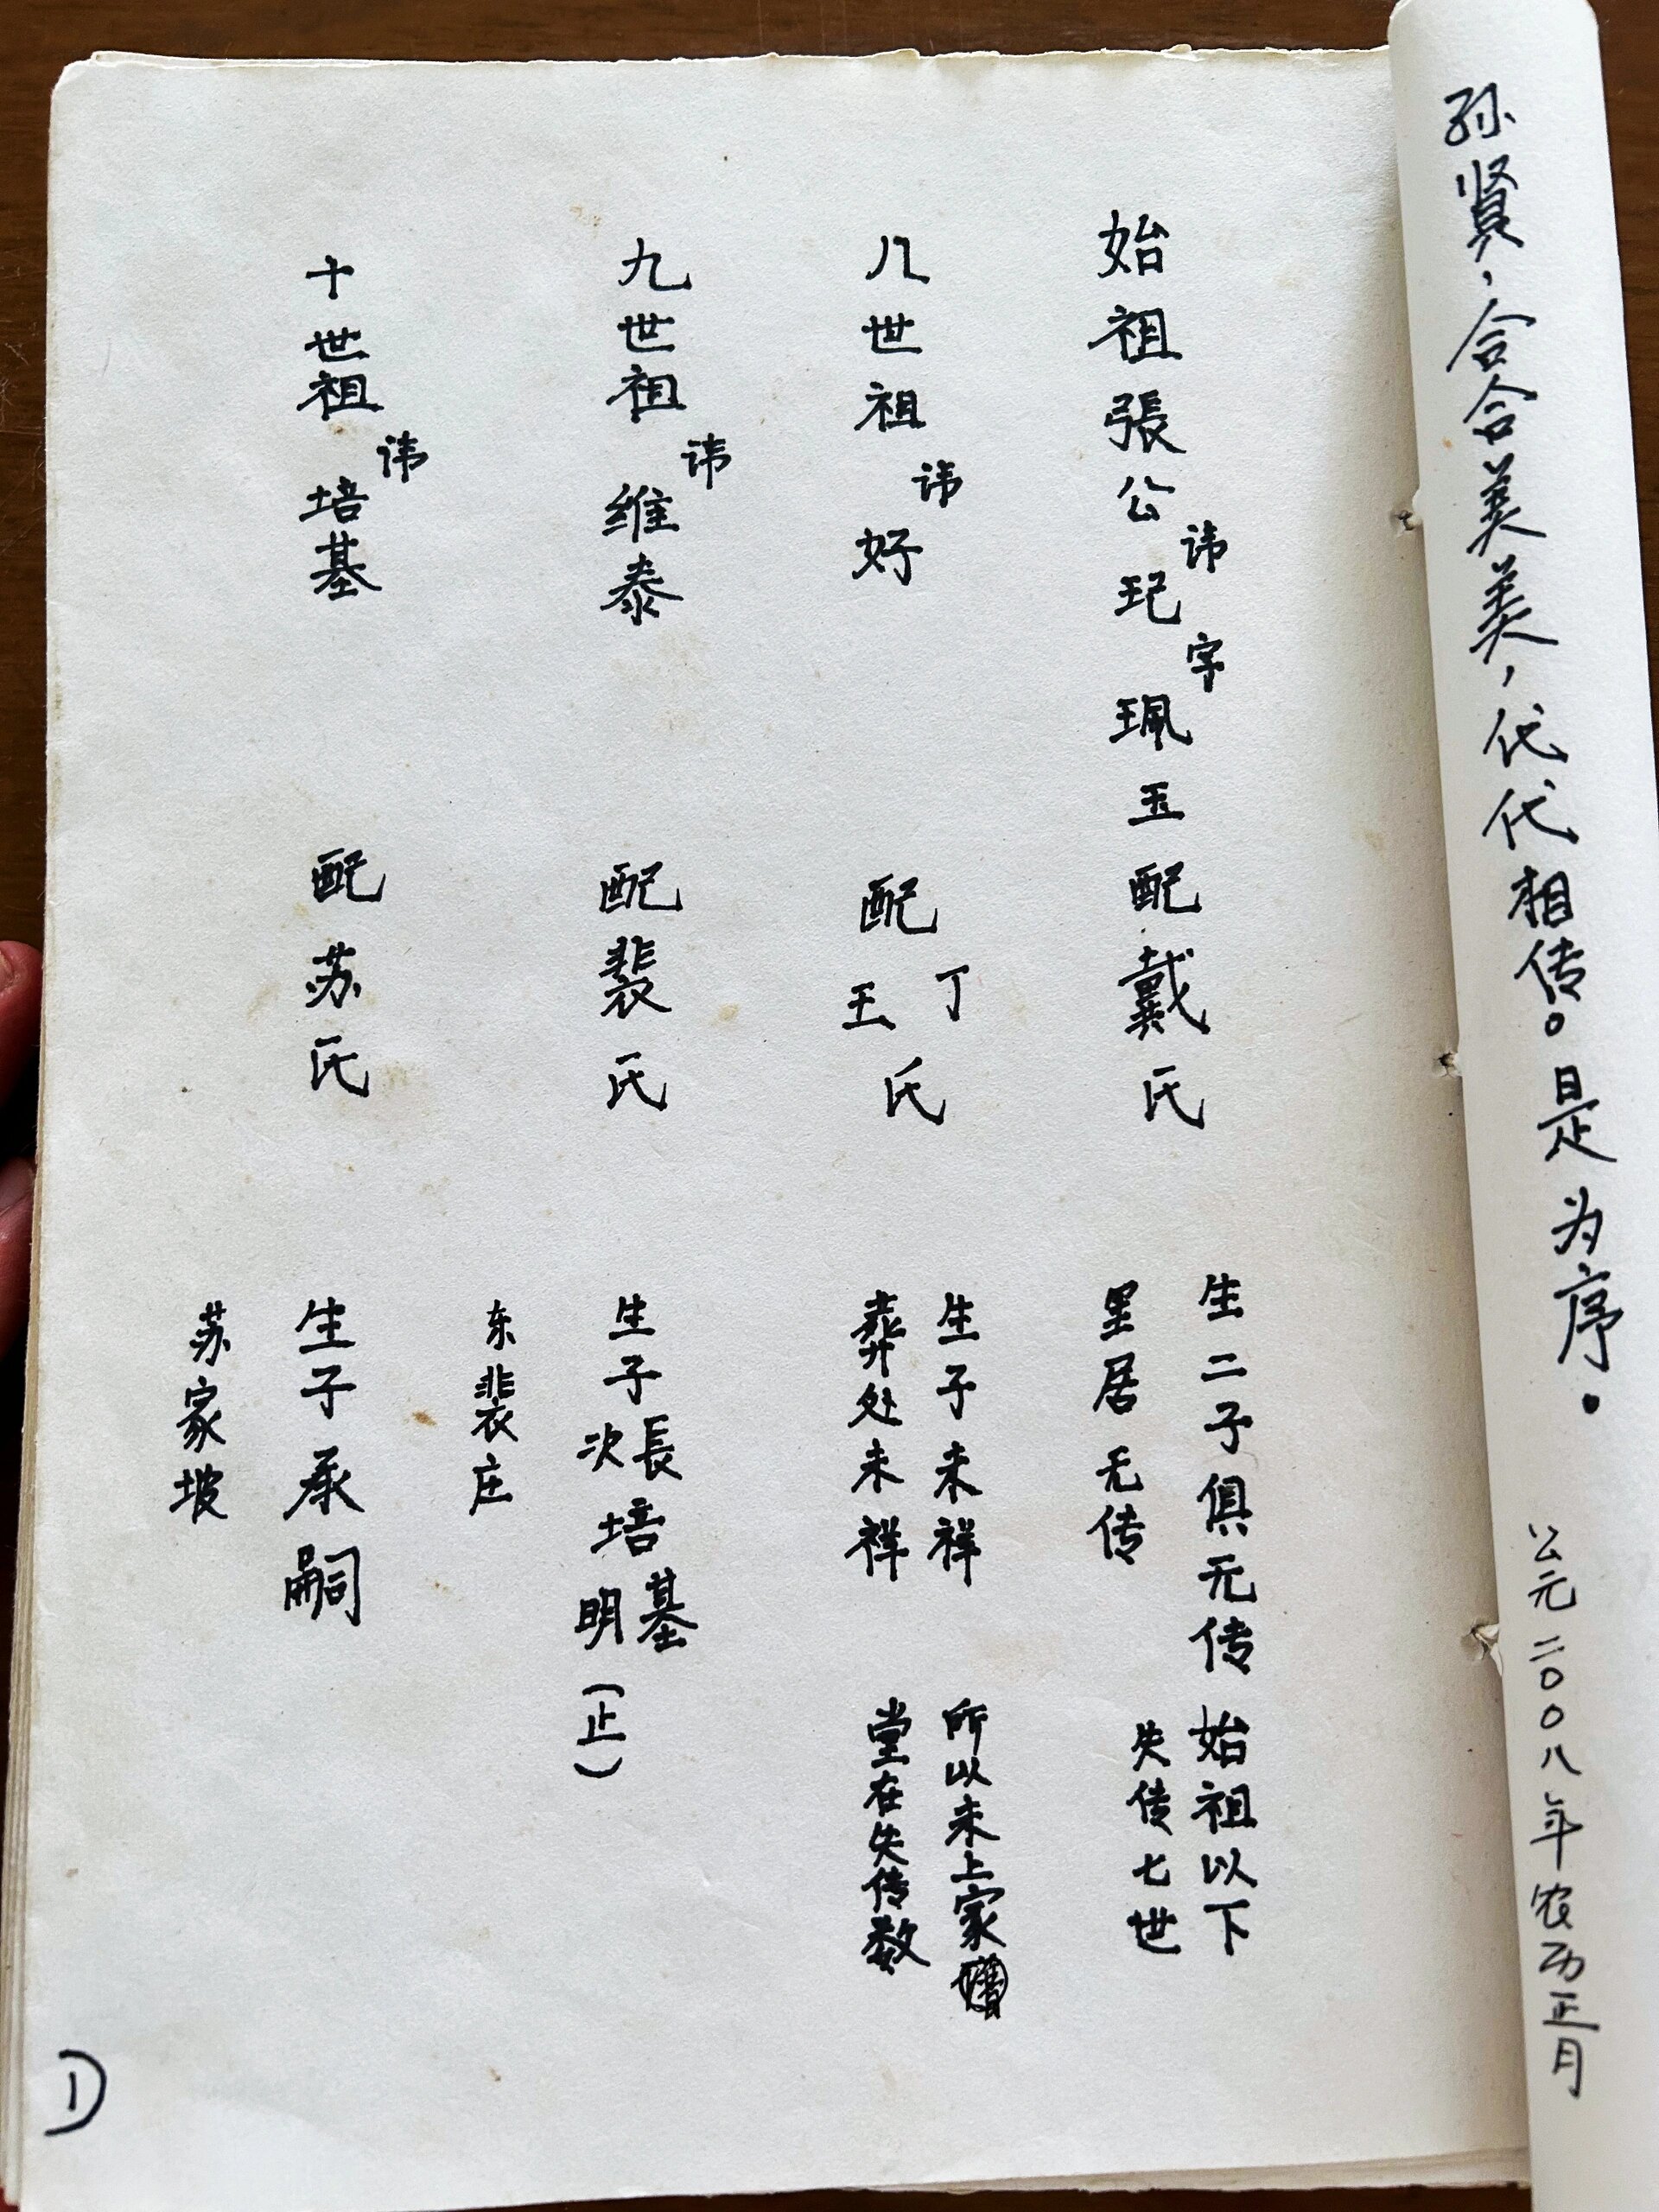 孙贤，合合美美，代代相传。是为序。
公元二〇〇八年农历正月
始祖張公讳玘字珮玉配戴氏
生二子俱无传
里居无传
始祖以下
失传七世
八世祖讳好
配丁王氏
生子未祥
葬处未祥
所以未上家
堂在失传数
九世祖讳维泰
配裴氏
生子長次培基明(正)
东裴庄
十世祖讳培基
配苏氏
生子承嗣
苏家坡
1